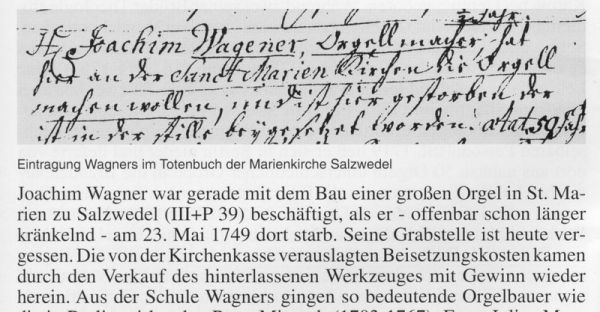 ½ Jahr.
H. Joachim Wagener, Orgell macher, hat
hier an der Sanct Marien Kirchen die Orgell
machen wollen, und ist hier gestorben der
ist in der stille beÿgesetzet worden. aetat. 59 Jahr
Eintragung Wagners im Totenbuch der Marienkirche Salzwedel
Joachim Wagner war gerade mit dem Bau einer großen Orgel in St. Ma-
rien zu Salzwedel (III+P 39) beschäftigt, als er - offenbar schon länger
kränkelnd - am 23. Mai 1749 dort starb. Seine Grabstelle ist heute ver-
gessen. Die von der Kirchenkasse verauslagten Beisetzungskosten kamen
durch den Verkauf des hinterlassenen Werkzeuges mit Gewinn wieder
herein. Aus der Schule Wagners gingen so bedeutende Orgelbauer wie